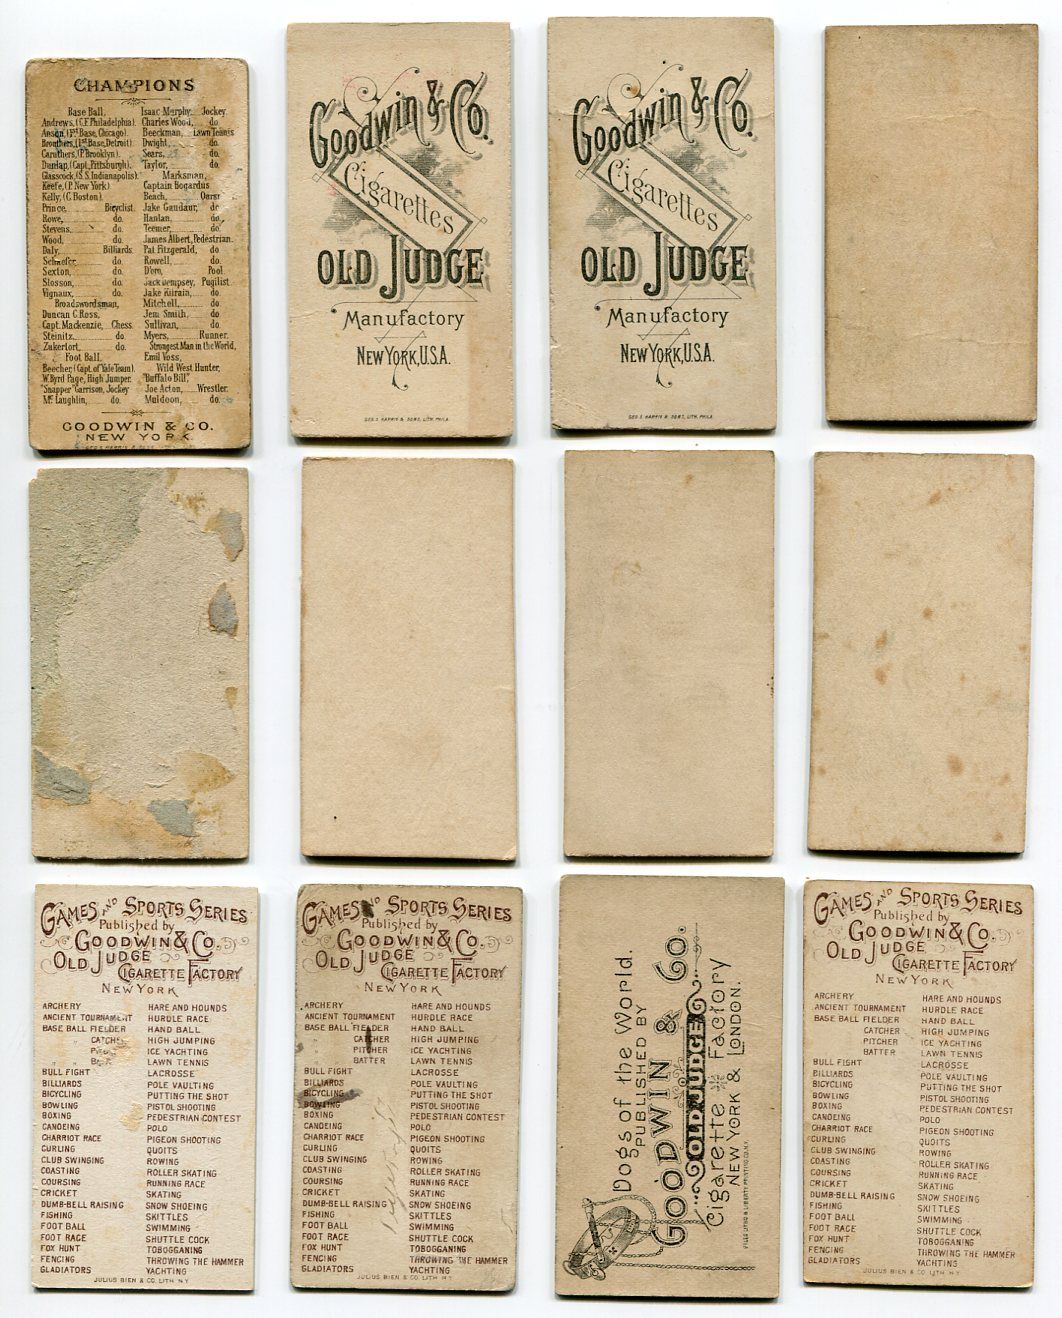 CHAMPIONS
Base Ball,
Andrews, (C.F. Philadelphia).
Anson, (1st Base, Chicago).
Brouthers, (1st Base, Detroit)
Caruthers, (P. Brooklyn).
Dunlap, (Capt. Pittsburgh).
Glasscock, (S.S. Indianapolis).
Keefe, (P. New York).
Kelly, (C. Boston).
Prince, Bicyclist.
Rowe, do.
Stevens, do.
Wood, do.
Daly, Billiards.
Schaefer, do.
Sexton, do.
Slosson, do.
Vignaux, do.
Broadswordsman,
Duncan C. Ross,
Capt. Mackenzie, Chess.
Steinitz, do.
Zukertort, do.
Foot Ball,
Beecher, (Capt. of Yale Team).
W. Byrd Page, High Jumper.
"Snapper" Garrison, Jockey
Mc Laughlin, do.
Isaac Murphy, Jockey.
Charles Wood, do.
Beeckman, Lawn Tennis
Dwight, do.
Sears, do.
Taylor, do.
Marksman,
Captain Bogardus
Beach, Oarsr
Jake Gaudaur, do.
Hanlan, do.
Teemer, do.
James Albert, Pedestrian.
Pat Fitzgerald, do.
Rowell, do.
D'oro, Pool.
Jack Dempsey, Pugilist.
Jake Kilrain, do.
Mitchell, do.
Jem Smith, do.
Sullivan, do.
Myers, Runner.
Strongest Man in the World,
Emil Voss,
Wild West Hunter,
"Buffalo Bill,"
Joe Acton, Wrestler.
Muldoon, do.
GOODWIN & CO.
NEW YORK.
Goodwin & Co.
Cigarettes
OLD JUDGE
Manufactory
NEW YORK, U.S.A.
GEO. S. HARRIS & SONS, LITH. PHILA.
Goodwin & Co.
Cigarettes
OLD JUDGE
Manufactory
NEW YORK, U.S.A.
GEO. S. HARRIS & SONS, LITH. PHILA.
GAMES AND SPORTS SERIES
Published by
GOODWIN & CO.
OLD JUDGE
CIGARETTE FACTORY
NEW YORK
ARCHERY
ANCIENT TOURNAMENT
BASE BALL FIELDER
" " CATCHER
BULL FIGHT
BILLIARDS
BICYCLING
BOWLING
BOXING
CANOEING
CHARRIOT RACE
CURLING
CLUB SWINGING
COASTING
COURSING
CRICKET
DUMB-BELL RAISING
FISHING
FOOT BALL
FOOT RACE
FOX HUNT
FENCING
GLADIATORS
HARE AND HOUNDS
HURDLE RACE
HAND BALL
HIGH JUMPING
ICE YACHTING
LAWN TENNIS
LACROSSE
POLE VAULTING
PUTTING THE SHOT
PISTOL SHOOTING
PEDESTRIAN CONTEST
POLO
PIGEON SHOOTING
QUOITS
ROWING
ROLLER SKATING
RUNNING RACE
SKATING
SNOW SHOEING
SKITTLES
SWIMMING
SHUTTLE COCK
TOBOGGANING
THROWING THE HAMMER
YACHTING
JULIUS BIEN & CO. LITH. N.Y.
GAMES AND SPORTS SERIES
Published by
GOODWIN & CO.
OLD JUDGE
CIGARETTE FACTORY
NEW YORK
ARCHERY
ANCIENT TOURNAMENT
BASE BALL FIELDER
CATCHER
PITCHER
BATTER
BULL FIGHT
BILLIARDS
BICYCLING
BOWLING
BOXING
CANOEING
CHARRIOT RACE
CURLING
CLUB SWINGING
COASTING
COURSING
CRICKET
DUMB-BELL RAISING
FISHING
FOOT BALL
FOOT RACE
FOX HUNT
FENCING
GLADIATORS
HARE AND HOUNDS
HURDLE RACE
HAND BALL
HIGH JUMPING
ICE YACHTING
LAWN TENNIS
LACROSSE
POLE VAULTING
PUTTING THE SHOT
PISTOL SHOOTING
PEDESTRIAN CONTEST
POLO
PIGEON SHOOTING
QUOITS
ROWING
ROLLER SKATING
RUNNING RACE
SKATING
SNOW SHOEING
SKITTLES
SWIMMING
SHUTTLE COCK
TOBOGGANING
THROWING THE HAMMER
YACHTING
JULIUS BIEN & CO. LITH. N.Y.
Dogs of the World.
PUBLISHED BY
GOODWIN & CO.
OLD JUDGE
Cigarette Factory
NEW YORK & LONDON.
GAMES AND SPORTS SERIES
Published by
GOODWIN & CO.
OLD JUDGE
CIGARETTE FACTORY
NEW YORK
ARCHERY
ANCIENT TOURNAMENT
BASE BALL FIELDER
CATCHER
PITCHER
BATTER
BULL FIGHT
BILLIARDS
BICYCLING
BOWLING
BOXING
CANOEING
CHARRIOT RACE
CURLING
CLUB SWINGING
COASTING
COURSING
CRICKET
DUMB-BELL RAISING
FISHING
FOOT BALL
FOOT RACE
FOX HUNT
FENCING
GLADIATORS
HARE AND HOUNDS
HURDLE RACE
HAND BALL
HIGH JUMPING
ICE YACHTING
LAWN TENNIS
LACROSSE
POLE VAULTING
PUTTING THE SHOT
PISTOL SHOOTING
PEDESTRIAN CONTEST
POLO
PIGEON SHOOTING
QUOITS
ROWING
ROLLER SKATING
RUNNING RACE
SKATING
SNOW SHOEING
SKITTLES
SWIMMING
SHUTTLE COCK
TOBOGGANING
THROWING THE HAMMER
YACHTING
JULIUS BIEN & CO. LITH. N.Y.